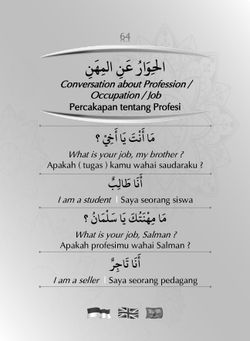 64
الحِوَارُ عَنِ المِهَنِ
Conversation about Profession /
Occupation / Job
Percakapan tentang Profesi
مَا أَنْتَ يَا أَخِيْ ؟
What is your job, my brother ?
Apakah ( tugas ) kamu wahai saudaraku ?
أَنَا طَالِبٌ
I am a student | Saya seorang siswa
مَا مِهْنَتُكَ يَا سَلْمَانُ ؟
What is your job, Salman ?
Apakah profesimu wahai Salman ?
أَنَا تَاجِرٌ
I am a seller | Saya seorang pedagang